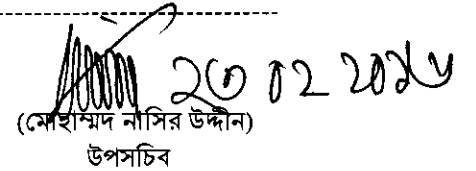 ২৩ ০২ ২০১৬
(মোহাম্মদ নাসির উদ্দীন)
উপসচিব